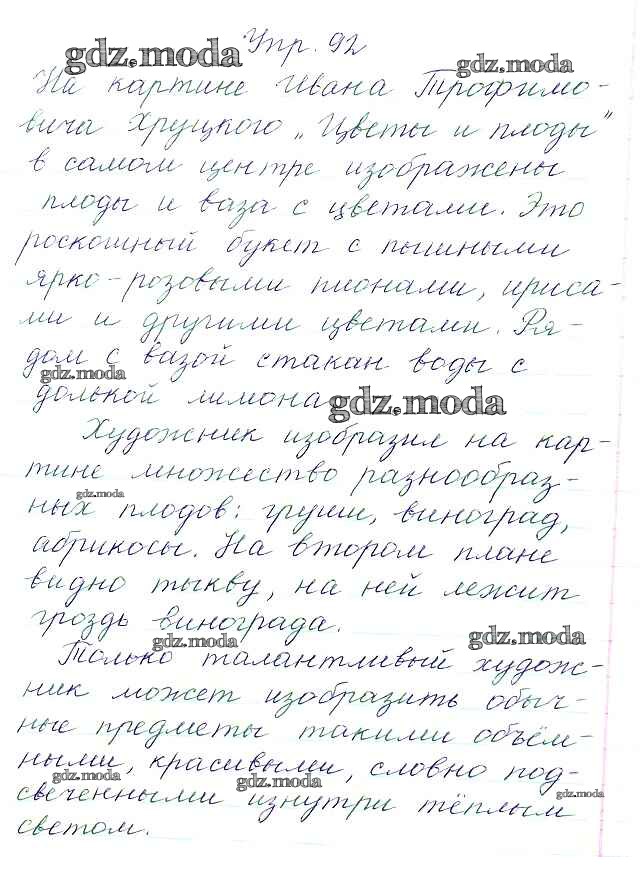 gdz.moda Упр. 92 gdz.moda
На картине Ивана Трофимо-
вича Хруцкого „Цветы и плоды"
в самом центре изображены
плоды и ваза с цветами. Это
роскошный букет с пышными
ярко-розовыми пионами, ириса-
ми и другими цветами. Ря-
дом с вазой стакан воды с
gdz.moda
долькой лимона gdz.moda
Художник изобразил на кар-
тине множество разнообраз-
gdz.moda
ных плодов: груши, виноград,
абрикосы. На втором плане
видно тыкву, на ней лежит
гроздь винограда.
gdz.moda gdz.moda
Только талантливый худож-
ник может изобразить обыч-
ные предметы такими объём-
ными, красивыми, словно под-
gdz.moda gdz.moda
свеченными изнутри тёплым
gdz.moda
светом.